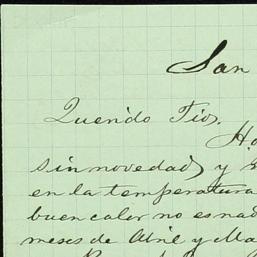 San
Querido Tio,
sin novedad y
en la temperatura
buen calor no es nad
meses de Abril y Ma